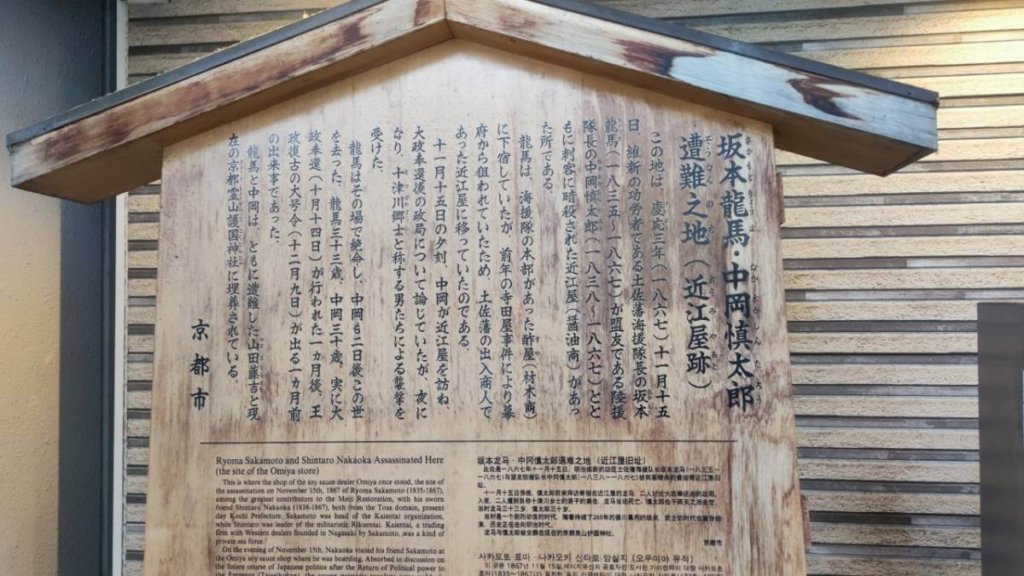 坂本龍馬・中岡慎太郎
遭難之地（近江屋跡）
この地は、慶応三年（一八六七）十一月十五
日、維新の功労者である土佐藩海援隊長の坂本
龍馬（一八三五〜一八六七）が盟友である陸援
隊長の中岡慎太郎（一八三八〜一八六七）とと
もに刺客に暗殺された近江屋（醤油商）があっ
た所である。
龍馬は、海援隊の本部があった酢屋（材木商）
に下宿していたが、前年の寺田屋事件により幕
府から狙われていたため、土佐藩の出入商人で
あった近江屋に移っていたのである。
十一月十五日の夕刻、中岡が近江屋を訪ね、
大政奉還後の政局について論じていたが、夜に
なり、十津川郷士と称する男たちによる襲撃を
受けた。
龍馬はその場で絶命し、中岡も二日後この世
を去った。龍馬三十三歳、中岡三十歳、実に大
政奉還（十月十四日）が行われた一カ月後、王
政復古の大号令（十二月九日）が出る一カ月前
の出来事であった。
龍馬と中岡は、ともに遭難した山田藤吉と現
在の京都霊山護国神社に埋葬されている。
京都市
Ryoma Sakamoto and Shintaro Nakaoka Assassinated Here
(the site of the Omiya store)
This is where the shop of the soy sauce dealer Omiya once stood, the site of
the assassination on November 15th, 1867 of Ryoma Sakamoto (1835-1867),
among the greatest contributors to the Meiji Restoration, with his sworn
friend Shintaro Nakaoka (1838-1867), both from the Tosa domain, present
day Kochi Prefecture. Sakamoto was head of the Kaientai organization,
while Shintaro was leader of the militaristic Rikuentai. Kaientai, a trading
firm with Western dealers founded in Nagasaki by Sakamoto, was a kind of
private sea force.
On the evening of November 15th, Nakaoka visited his friend Sakamoto at
the Omiya soy sauce shop where he was boarding. Absorbed in discussion on
the future course of Japanese politics after the Return of Political power to
坂本龙马・中冈慎太郎遇难之地（近江屋旧址）
京都市
사카모토 료마・나카오카 신타로 암살지 (오우미야 유적)